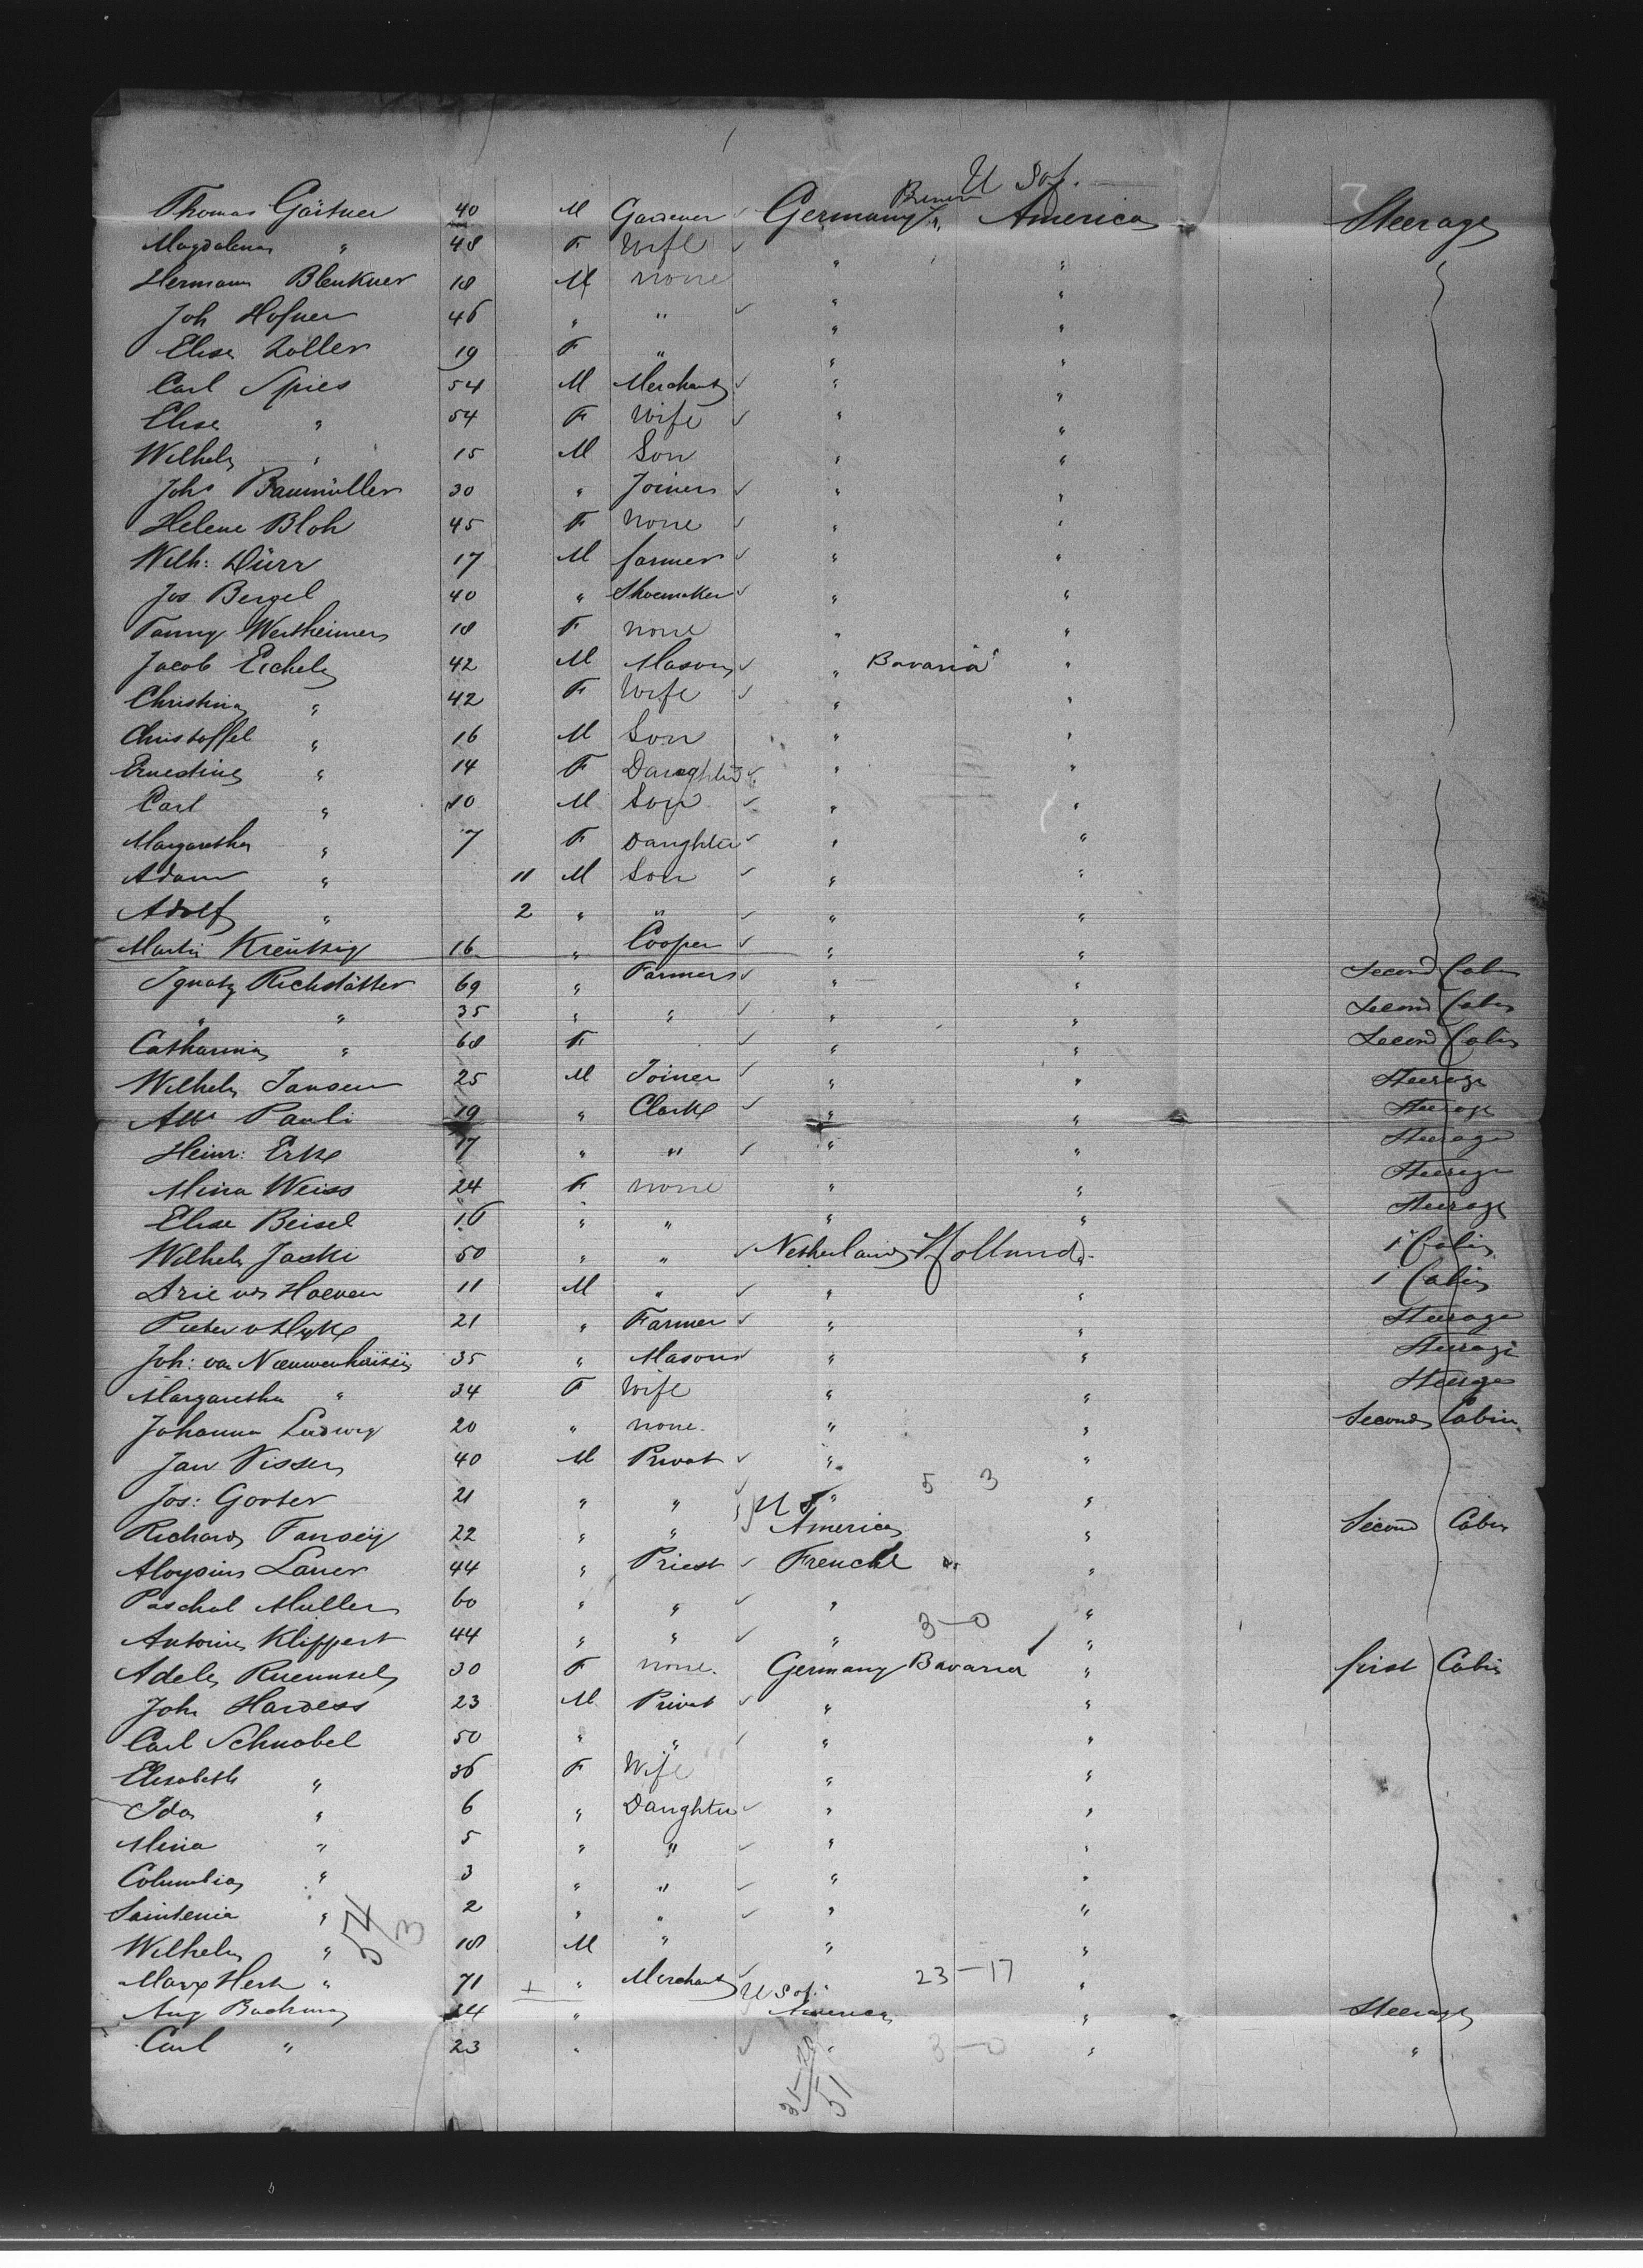 U S of.
Thomas Gärtner 40 M Gardener Germany Bremen America Steerage
Magdalena " 48 F Wife " "
Hermann Blenkner 18 M None " "
Joh Hofner 46 " " " "
Elise Zoller 19 F " " "
Carl Spies 54 M Merchant " "
Elise " 54 F Wife " "
Wilhelm " 15 M Son " "
Johs Baumüller 30 " Joiner " "
Helene Bloh 45 F None " "
Wilh: Dürr 17 M farmer " "
Jos Bergel 40 " Shoemaker " "
Fanny Wertheimer 18 F none " "
Jacob Eichele 42 M Mason " Bavaria "
Christina " 42 F Wife " "
Christoffel " 16 M Son " "
Ernestine " 14 F Daughter " "
Carl " 10 M Son " "
Margaretha " 7 F Daughter " "
Adam " 11 M Son " "
Adolf " 2 " " " "
Martin Kreutzig 16 " Cooper " "
Ignatz Richstätter 69 " Farmer " " Second Cabin
" " 35 " " " " Second Cabin
Catharina " 68 F " " Second Cabin
Wilhelm Jansen 25 M Joiner " " Steerage
Pauli 19 " Clark " " Steerage
Heinr: Erke 17 " " " " Steerage
Mina Weiss 24 F none " " Steerage
Elise Beisel 16 " " " " Steerage
Wilhelm Jaske 50 " " Netherland Holland 1 Cabin
Arie vd Hoeven 11 M " " " 1 Cabin
Pieter v Dyke 21 " Farmer " " Steerage
Joh: van Nieuwenhuisen 35 " Mason " " Steerage
Margaretha " 34 F Wife " " Steerage
Johanna Ludwig 20 " none. " " Second Cabin
Jan Visser 40 M Privat " "
5 3
Jos: Gorter 21 " " " "
U S
Richard Tansey 22 " " America " Second Cabin
Aloysius Lauer 44 " Priest French "
Paschal Muller 60 " " " "
3-0
Antonius Klippert 44 " " " "
Adele 30 F none. Germany Bavaria " first Cabin
John Hardess 23 M Privat " "
Carl Schnabel 50 " " " "
Elisabeth " 36 F Wife " "
Ida " 6 " Daughter " "
Mina " 5 " " " "
Columbia " 3 " " " "
Saintenia " 2 " " " "
54/3
Wilhelm " 18 M " " "
Marx Hert " 71 " Merchant 23-17 "
U S of.
Aug Bachman 24 " America " Steerage
Carl " 23 " " 3-0 " "
51